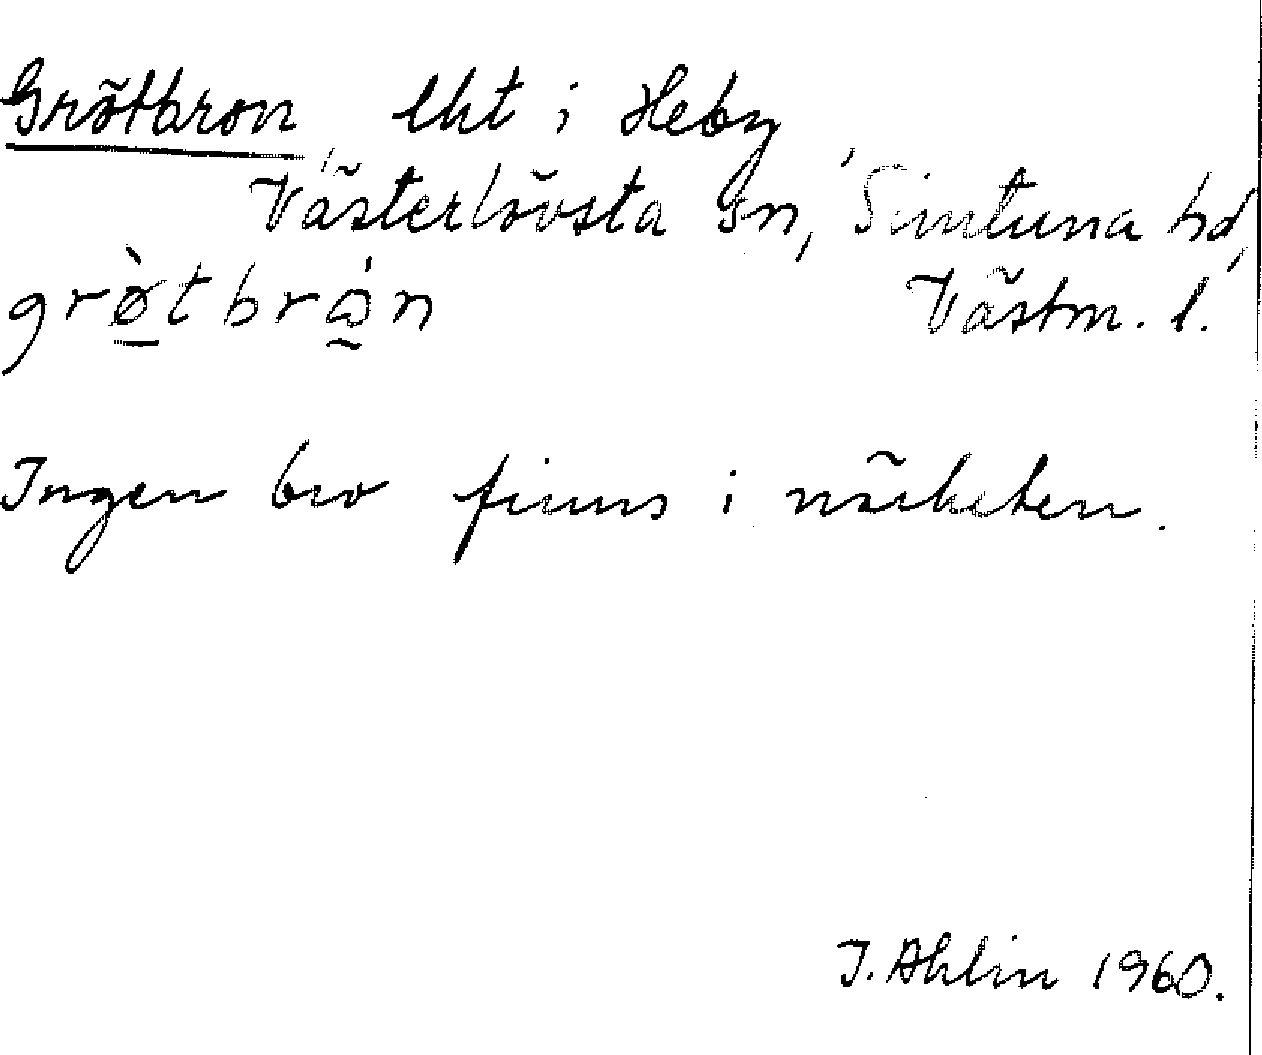 Grötbron, lht i Heby,
Västerlövsta sn, Simtuna hd,
grø̀tbrὼn Västm. l.
Ingen bro finns i närheten.
I. Ahlin 1960.